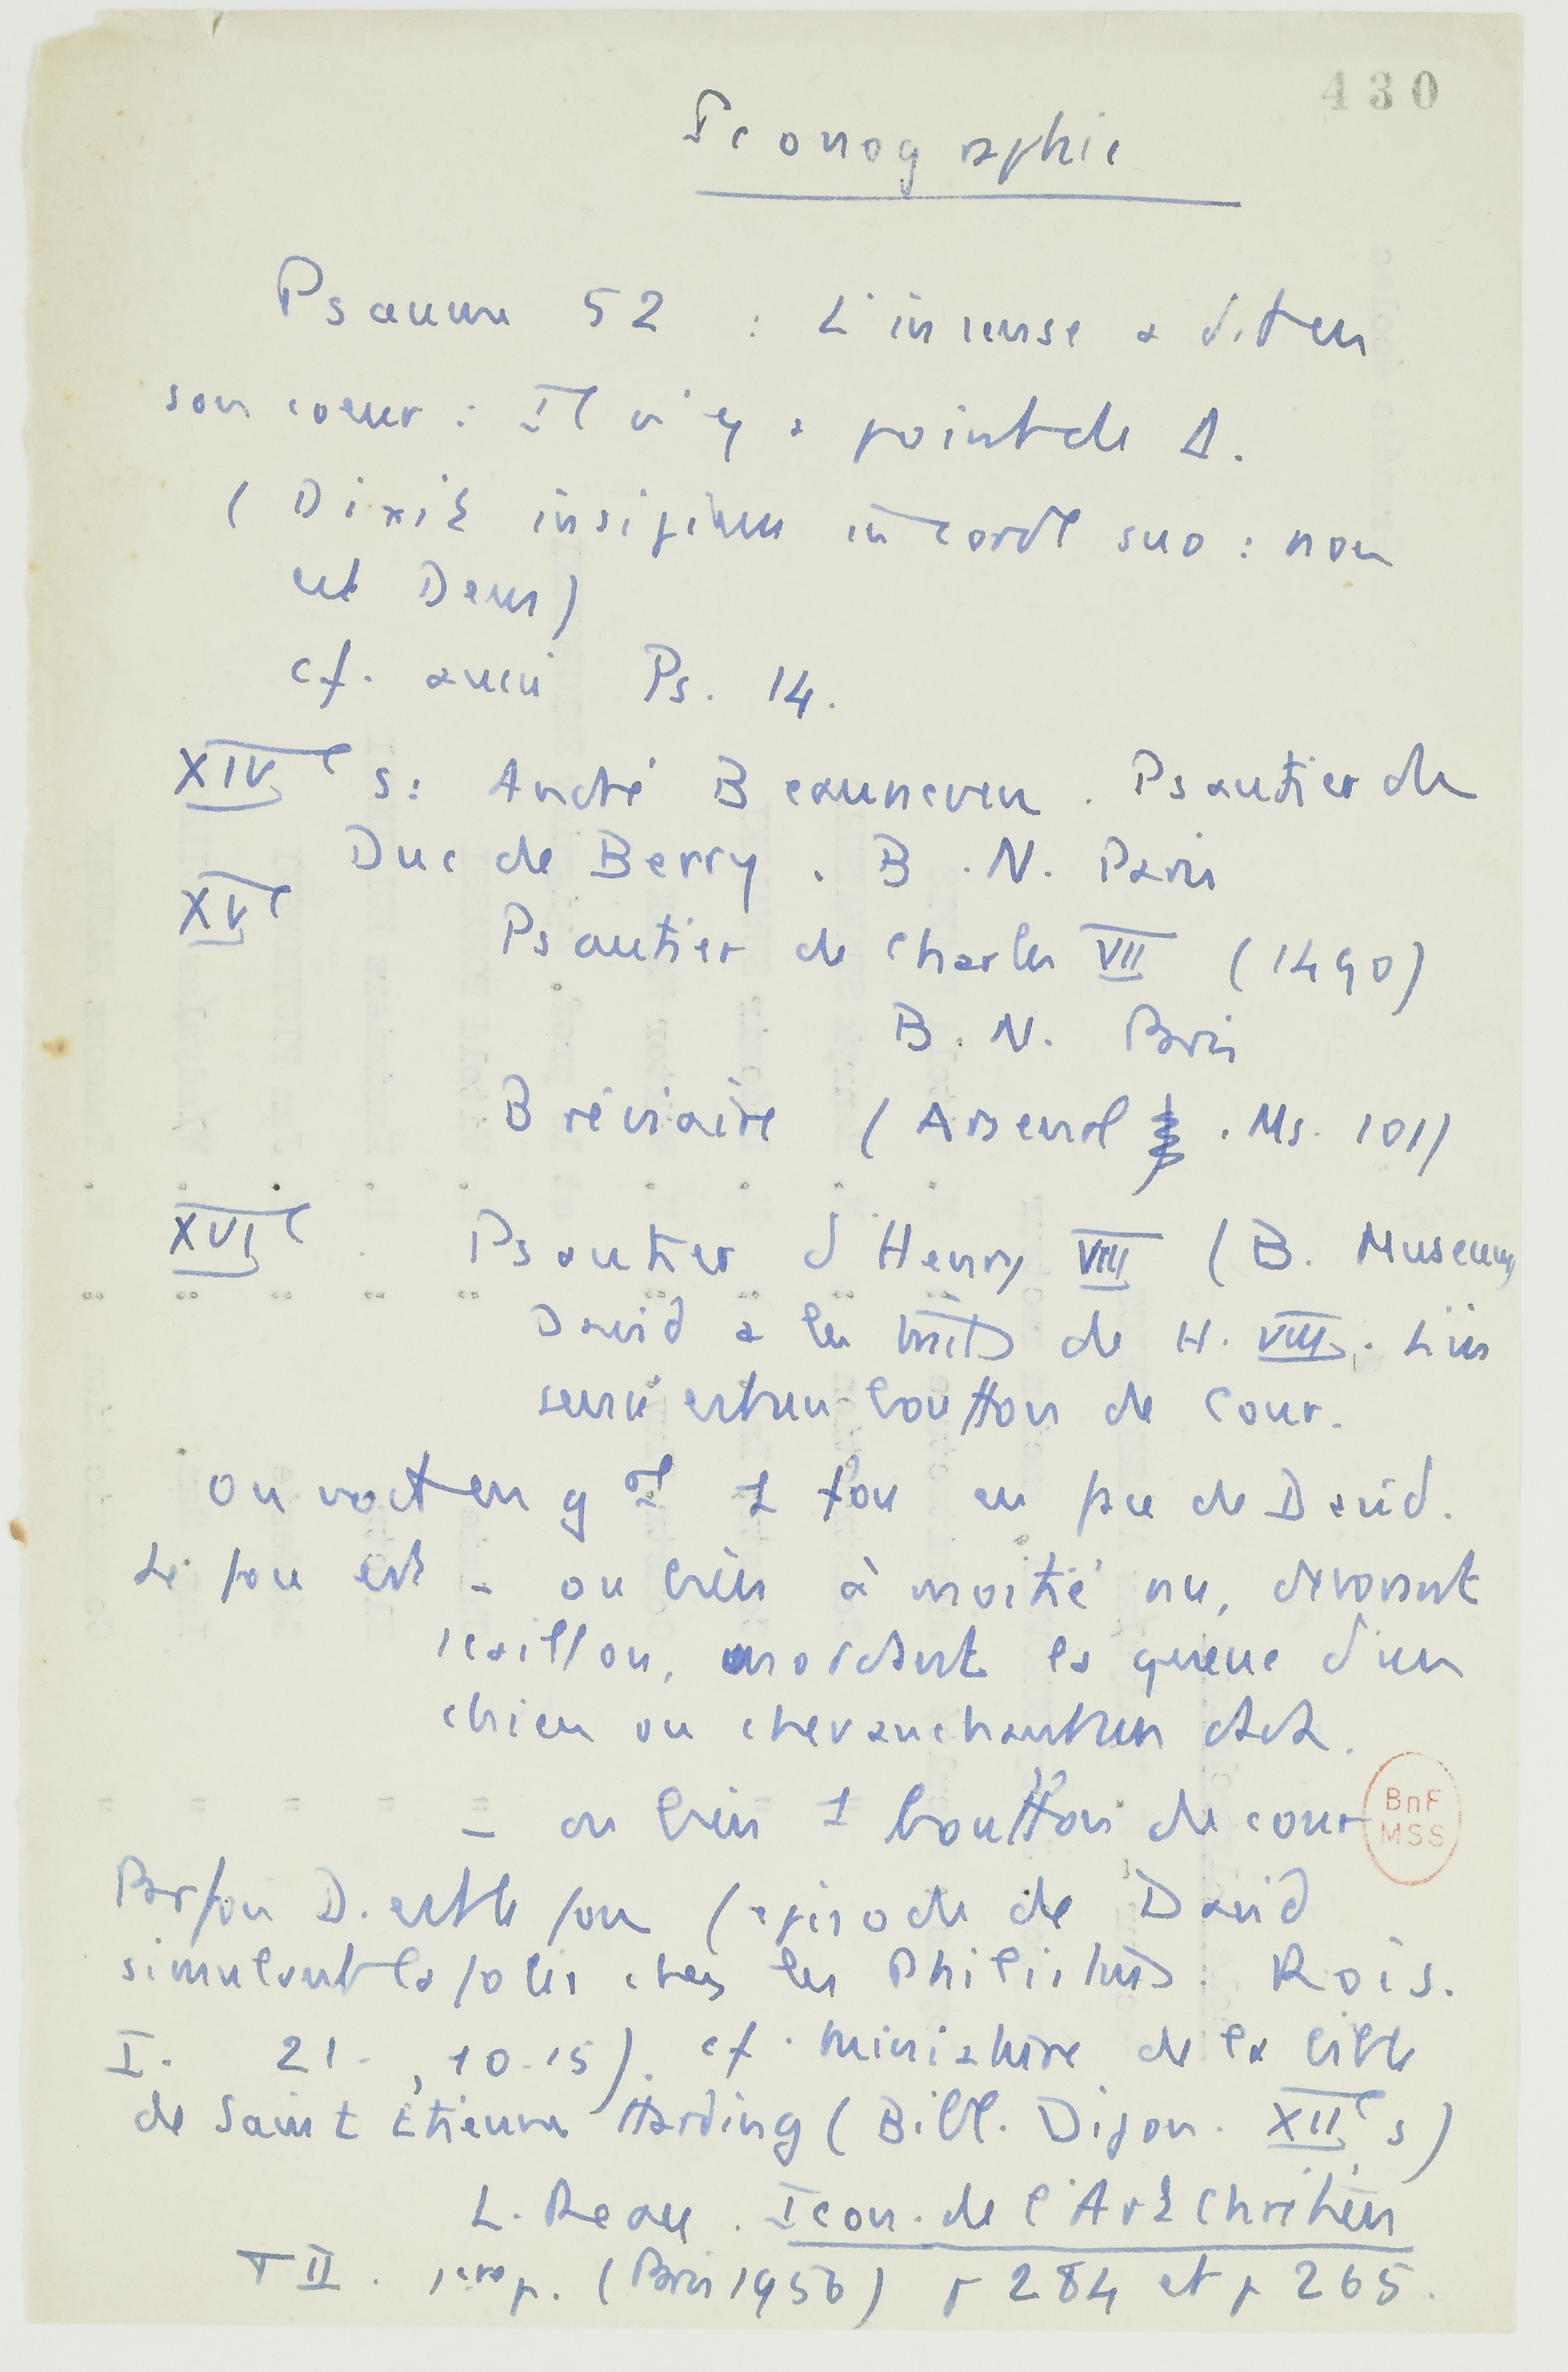 430
Iconographie
Psaume 52 : L'insensé a dit en
son coeur : Il n'y a point de D.
(Dixit insipiens in corde suo : non
est Deus)
cf. aussi Ps. 14.
XIVe s : André Beauneveu. Psautier du
Duc de Berry. B.N. Paris
XVe Psautier de Charles VII (1490)
B.N. Paris
Bréviaire (Arsenal. Ms. 101)
XVIe. Psautier d'Henry VIII (B. Museum)
David a les traits de H. VIII. L'in
sensé est un bouffon de cour.
On voit en gal 1 fou en face de David.
Le fou est - ou bien à moitié nu, dévorant
1 caillou, mordant la queue d'un
chien ou chevauchant un
- ou bien 1 bouffon de cour
Parfois D. est le fou (épisode de David
simulant la folie chez les Philistins. Rois.
I. 21, 10-15). cf. miniature de la bible
de Saint Etienne Harding (Bibl. Dijon. XIIe s)
L. Réau. Icon. de l'Art Chrétien
T II. 1ere p. (Paris 1956) p 284 et p 265.
BnF
MSS